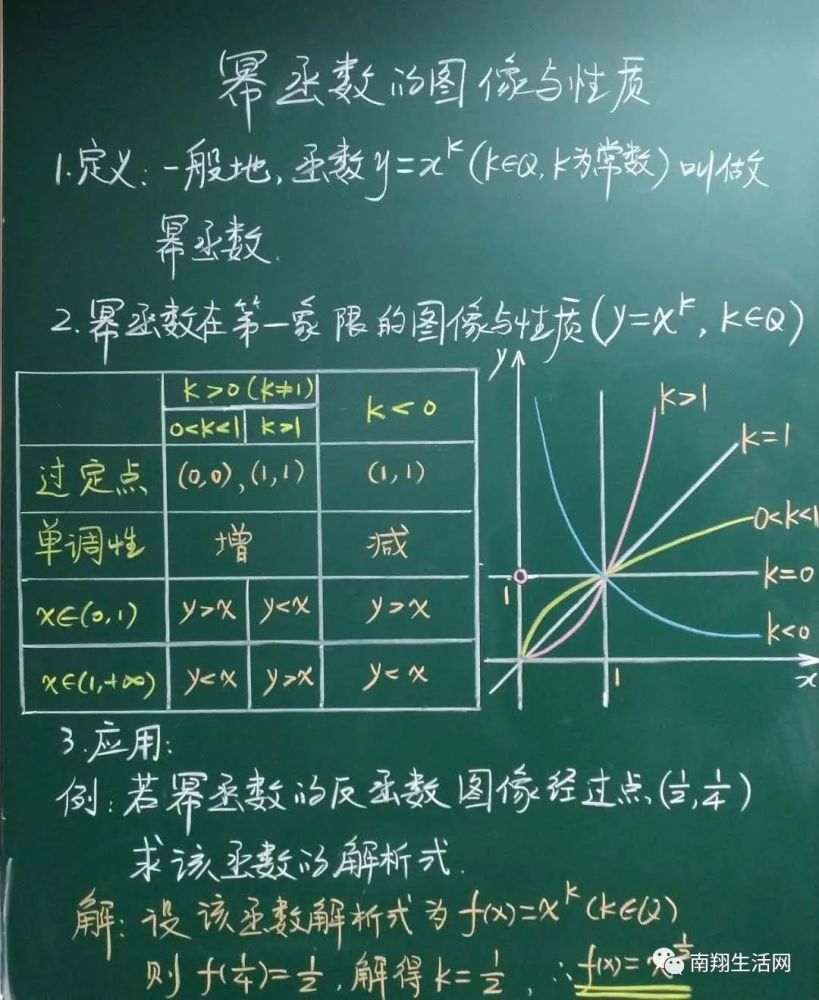 幂函数的图像与性质
1.定义：一般地，函数y=x^k(k∈Q,k为常数)叫做
幂函数.
2.幂函数在第一象限的图像与性质(y=x^k, k∈Q)
k>0(k≠1) k<0
0<k<1 k>1
过定点 (0,0),(1,1) (1,1)
单调性 增 减
x∈(0,1) y>x y<x y>x
x∈(1,+∞) y<x y>x y<x
y
k>1
k=1
0<k<1
k=0
k<0
1
1
x
3.应用：
例：若幂函数的反函数图像经过点(1/2,1/4)
求该函数的解析式.
解：设该函数解析式为f(x)=x^k(k∈Q)
则 f(1/4)=1/2,解得k=1/2, ∴f(x)=x^1/2
南翔生活网